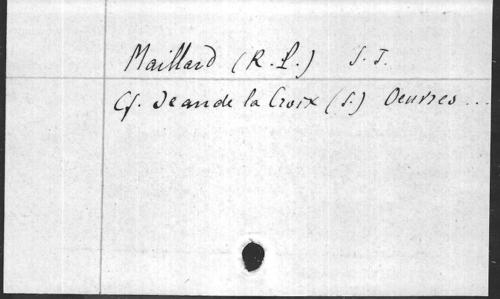 Maillard (R. L.) S. J.
Cf. Jean de la Croix (S.) Oeuvres ...